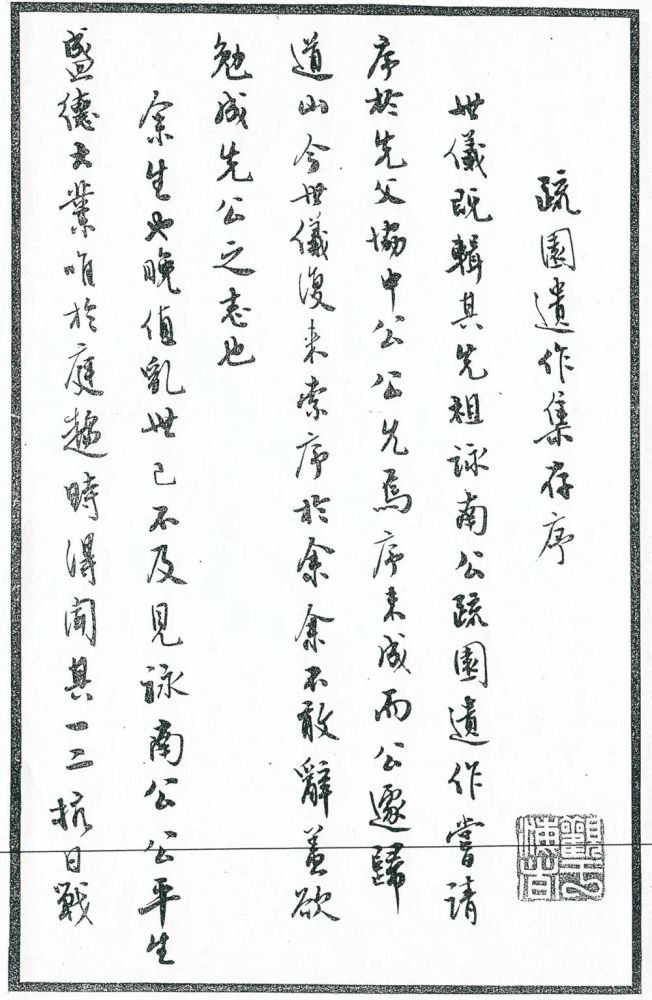 疏園遺作集存序
世儀既輯其先祖詠南公疏園遺作嘗請
序於先父協中公公先焉序未成而公遽歸
道山今世儀復来索序於余余不敢辭蓋欲
勉成先公之志也
余生也晚值亂世已不及見詠南公公平生
盛德大業唯於庭趨時得聞其一二抗日戰